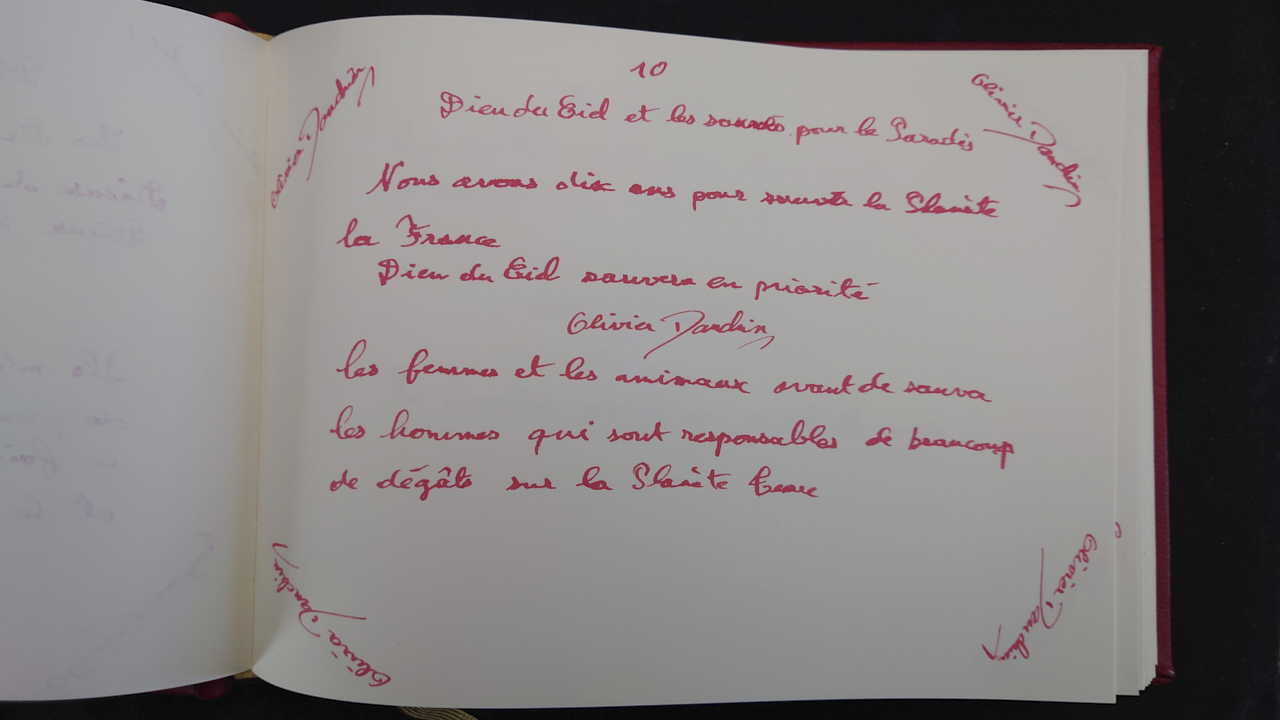 10
Dieu du Eid et les sourds pour le Paradis
Nous avons dix ans pour sauver la Planète
la France
Dieu du Eid sauvera en priorité
Olivier Dandin
les femmes et les animaux avant de sauver
les hommes qui sont responsables de beaucoup
de dégâts sur la Planète Terre
Olivier Dandin
Olivier Dandin
Olivier Dandin
Olivier Dandin